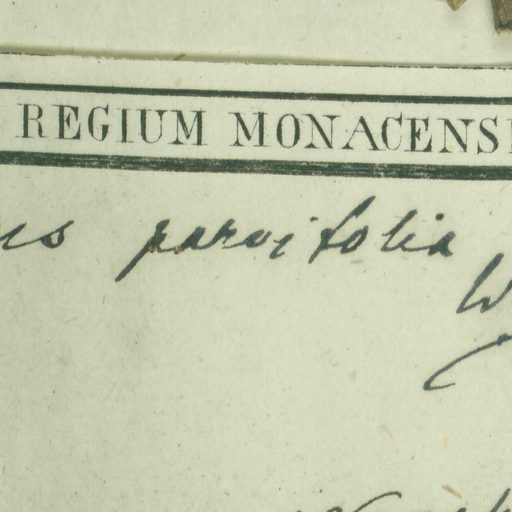 REGIUM MONACENS
us parvifolia
W